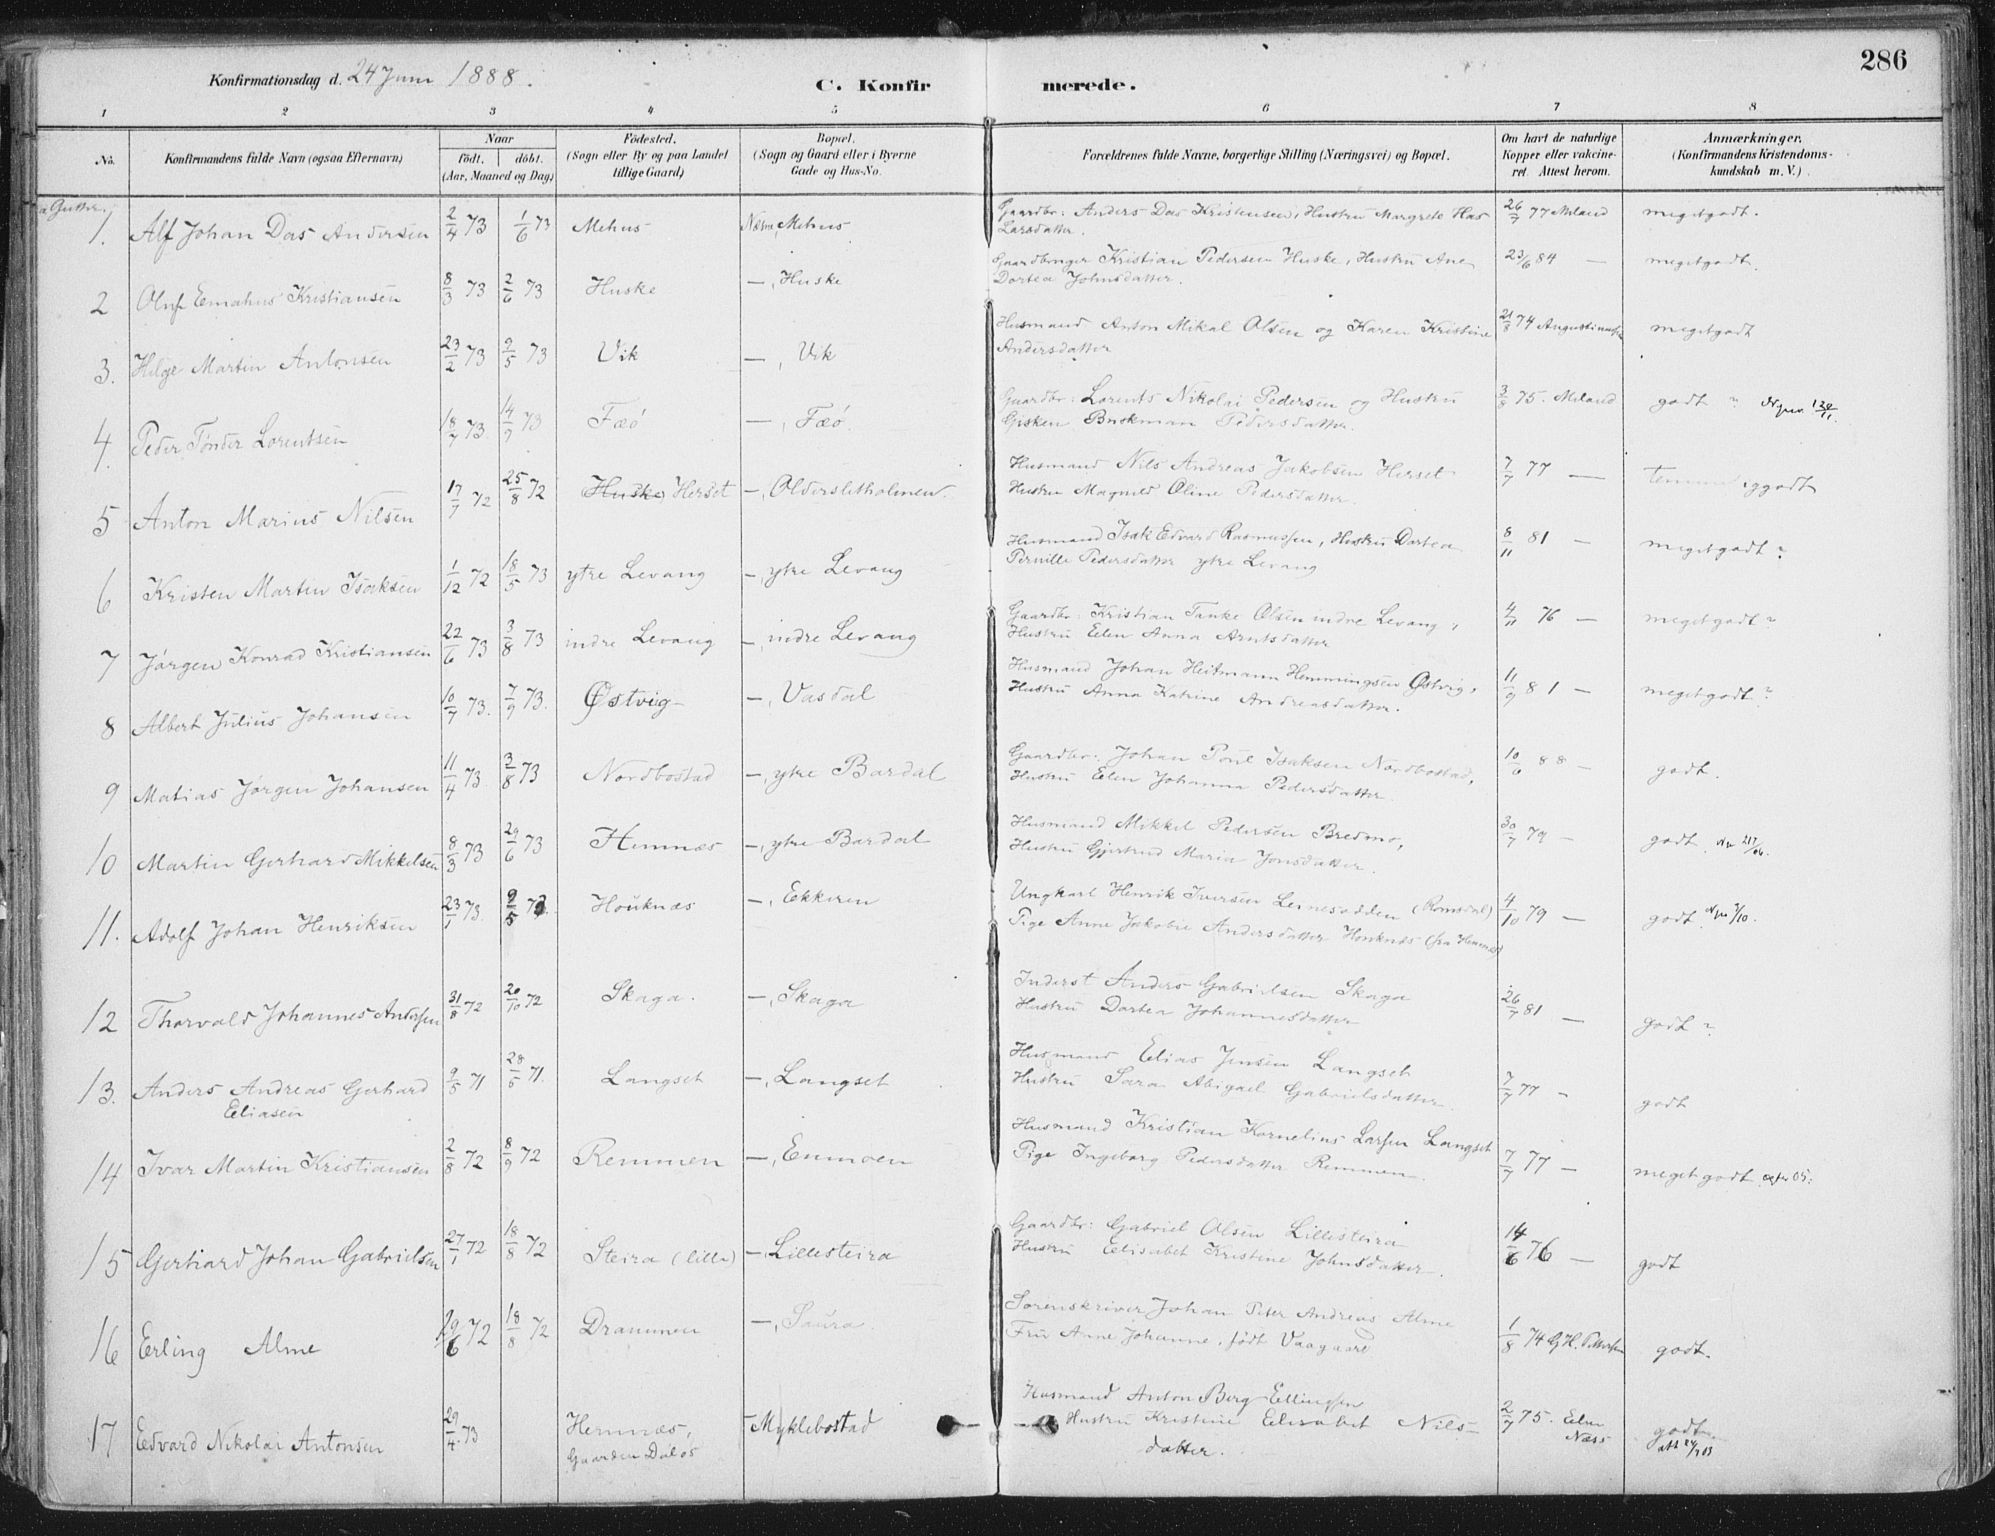 286
Konfirmationsdag d. 24 Juni 1888.
C. Konfirmerede.
1 2 3 4 5 6 7 8
No.
Konfirmandens fulde Navn (ogsaa Efternavn)
Naar
födt. döbt.
(Aar, Maaned og Dag)
Födested.
(Sogn eller By og paa Landet
tillige Gaard)
Bopæl.
(Sogn og Gaard eller i Byerne
Gade og Hus-No.
Forældrenes fulde Navne, borgerlige Stilling (Næringsvei) og Bopæl.
Om havt de naturlige
Kopper eller vakcine-
ret. Attest herom.
Anmærkninger.
(Konfirmandens Kristendoms-
kundskab m. V.)
a Gutter.
1. Alf Johan Das Andersen 2/4 73 1/6 73 Mehus Næsne, Mehus Gaardbr: Anders Das Kristensen, Hustru Margrete Has 26/7 77 Meland megetgodt.
Larsdatter.
2 Oluf Emahus Kristiansen 8/3 73 2/6 73 Huske —, Huske Gaardbruger Kristian Pedersen Huske, Hustru Ane 23/6 84 — megetgodt.
Dortea Johnsdatter.
3. Helge Martin Antonsen 23/2 73 9/5 73 Vik —, Vik Husmand Anton Mikal Olsen og Karen Kristine 21/8 74 megetgodt
Andersdatter
4. Peder Tønder Lorentsen 18/7 73. 14/9 73 Fæö —, Fæö. Gaardbr: Lorents Nikolai Pedersen og Hustru 3/8 75. Meland godt
Gisken Buskman Pedersdatter.
5 Anton Marius Nilsen 17/7 72 25/8 72 Huske Herset —, Oldersletholmen. Husmand Nils Andreas Jakobsen Herset 7/7 77 —
Hustru Magnild Oline Pedersdatter.
6 Kristen Martin Isaksen 1/12 72 18/5 73 ytre Levang —, ytre Levang Husmand Isak Edvard Rasmussen, Hustru Dortea 8/11 81 — megetgodt?
Pernille Pedersdatter ytre Levang
7 Jørgen Konrad Kristiansen 22/6 73 3/8 73 indre Levang —, indre Levang Gaardbr: Kristian Tanke Olsen indre Levang, 4/11 76 — megetgodt?
Hustru Elen Anna Arntsdatter
8 Albert Julius Johansen 10/7 73. 7/9 73. Østvig —, Vasdal Husmand Johan Heitmann Hemmingsen Østvig, 11/9 81 — megetgodt?
Hustru Anna Katrine Andreasdatter.
9 Matias Jørgen Johansen 11/4 73 3/8 73 Nordbostad —, ytre Bardal Gaardbr: Johan Poul Isaksen Nordbostad, 10/6 88 — godt.
Hustru Elen Johanna Pedersdatter.
10 Martin Gerhard Mikkelsen 8/3 73 29/6 73 Hemnæs —, ytre Bardal Husmand Mikkel Pedersen Bredmo, 30/7 79 — godt.
Hustru Gjertrud Maria Jonsdatter.
11. Adolf Johan Henriksen 23/1 73. 9/5 73. Houknæs —, Ekkeren Ungkarl Henrik Iversen Leinesodden (Romsdal) 4/10 79 — godt.
Pige Anne Jakobie Andersdatter Houknæs (fra Hemnæs)
12 Thorvald Johannes Andersen 31/8 72 20/10 72 Skaga. —, Skaga Inderst Anders Gabrielsen Skaga 26/7 81 — godt?
Hustru Dortea Johannesdatter
13. Anders Andreas Gerhard 9/5 71 28/5 71. Langset —, Langset Husmand Elias Jensen Langset 7/7 77 — godt
Eliasen Hustru Sara Abigael Gabrielsdatter.
14 Ivar Martin Kristiansen 2/8 72 8/9 72 Remmen —, Enmoen Husmand Kristian Kornelius Larsen Langset 7/7 77 — megetgodt
Pige Ingeborg Pedersdatter Remmen.
15 Gerhard Johan Gabrielsen 27/1 72 18/8 72 Steira (lille) —, Lillesteira Gaardbr: Gabriel Olsen Lillesteira 14/6 76 — godt
Hustru Elisabet Kristine Johnsdatter.
16 Erling Alme 29/6 72 18/8 72 Drammen —, Saura Sorenskriver Johan Peter Andreas Alme 1/8 74 godt.
Fru Anne Johanne, født Vaagaard
17 Edvard Nikolai Antonsen 29/4 73 Hemnæs, — Myklebostad Husmand Anton Berg Ellingsen 2/7 75. Elen godt
Gaarden Dalos Hustru Kristine Elisabet Nils- Næss
datter.